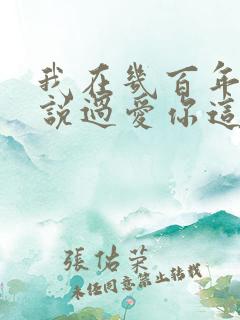 我在幾百年
說過愛你這
張佑榮
未經同意禁止轉載